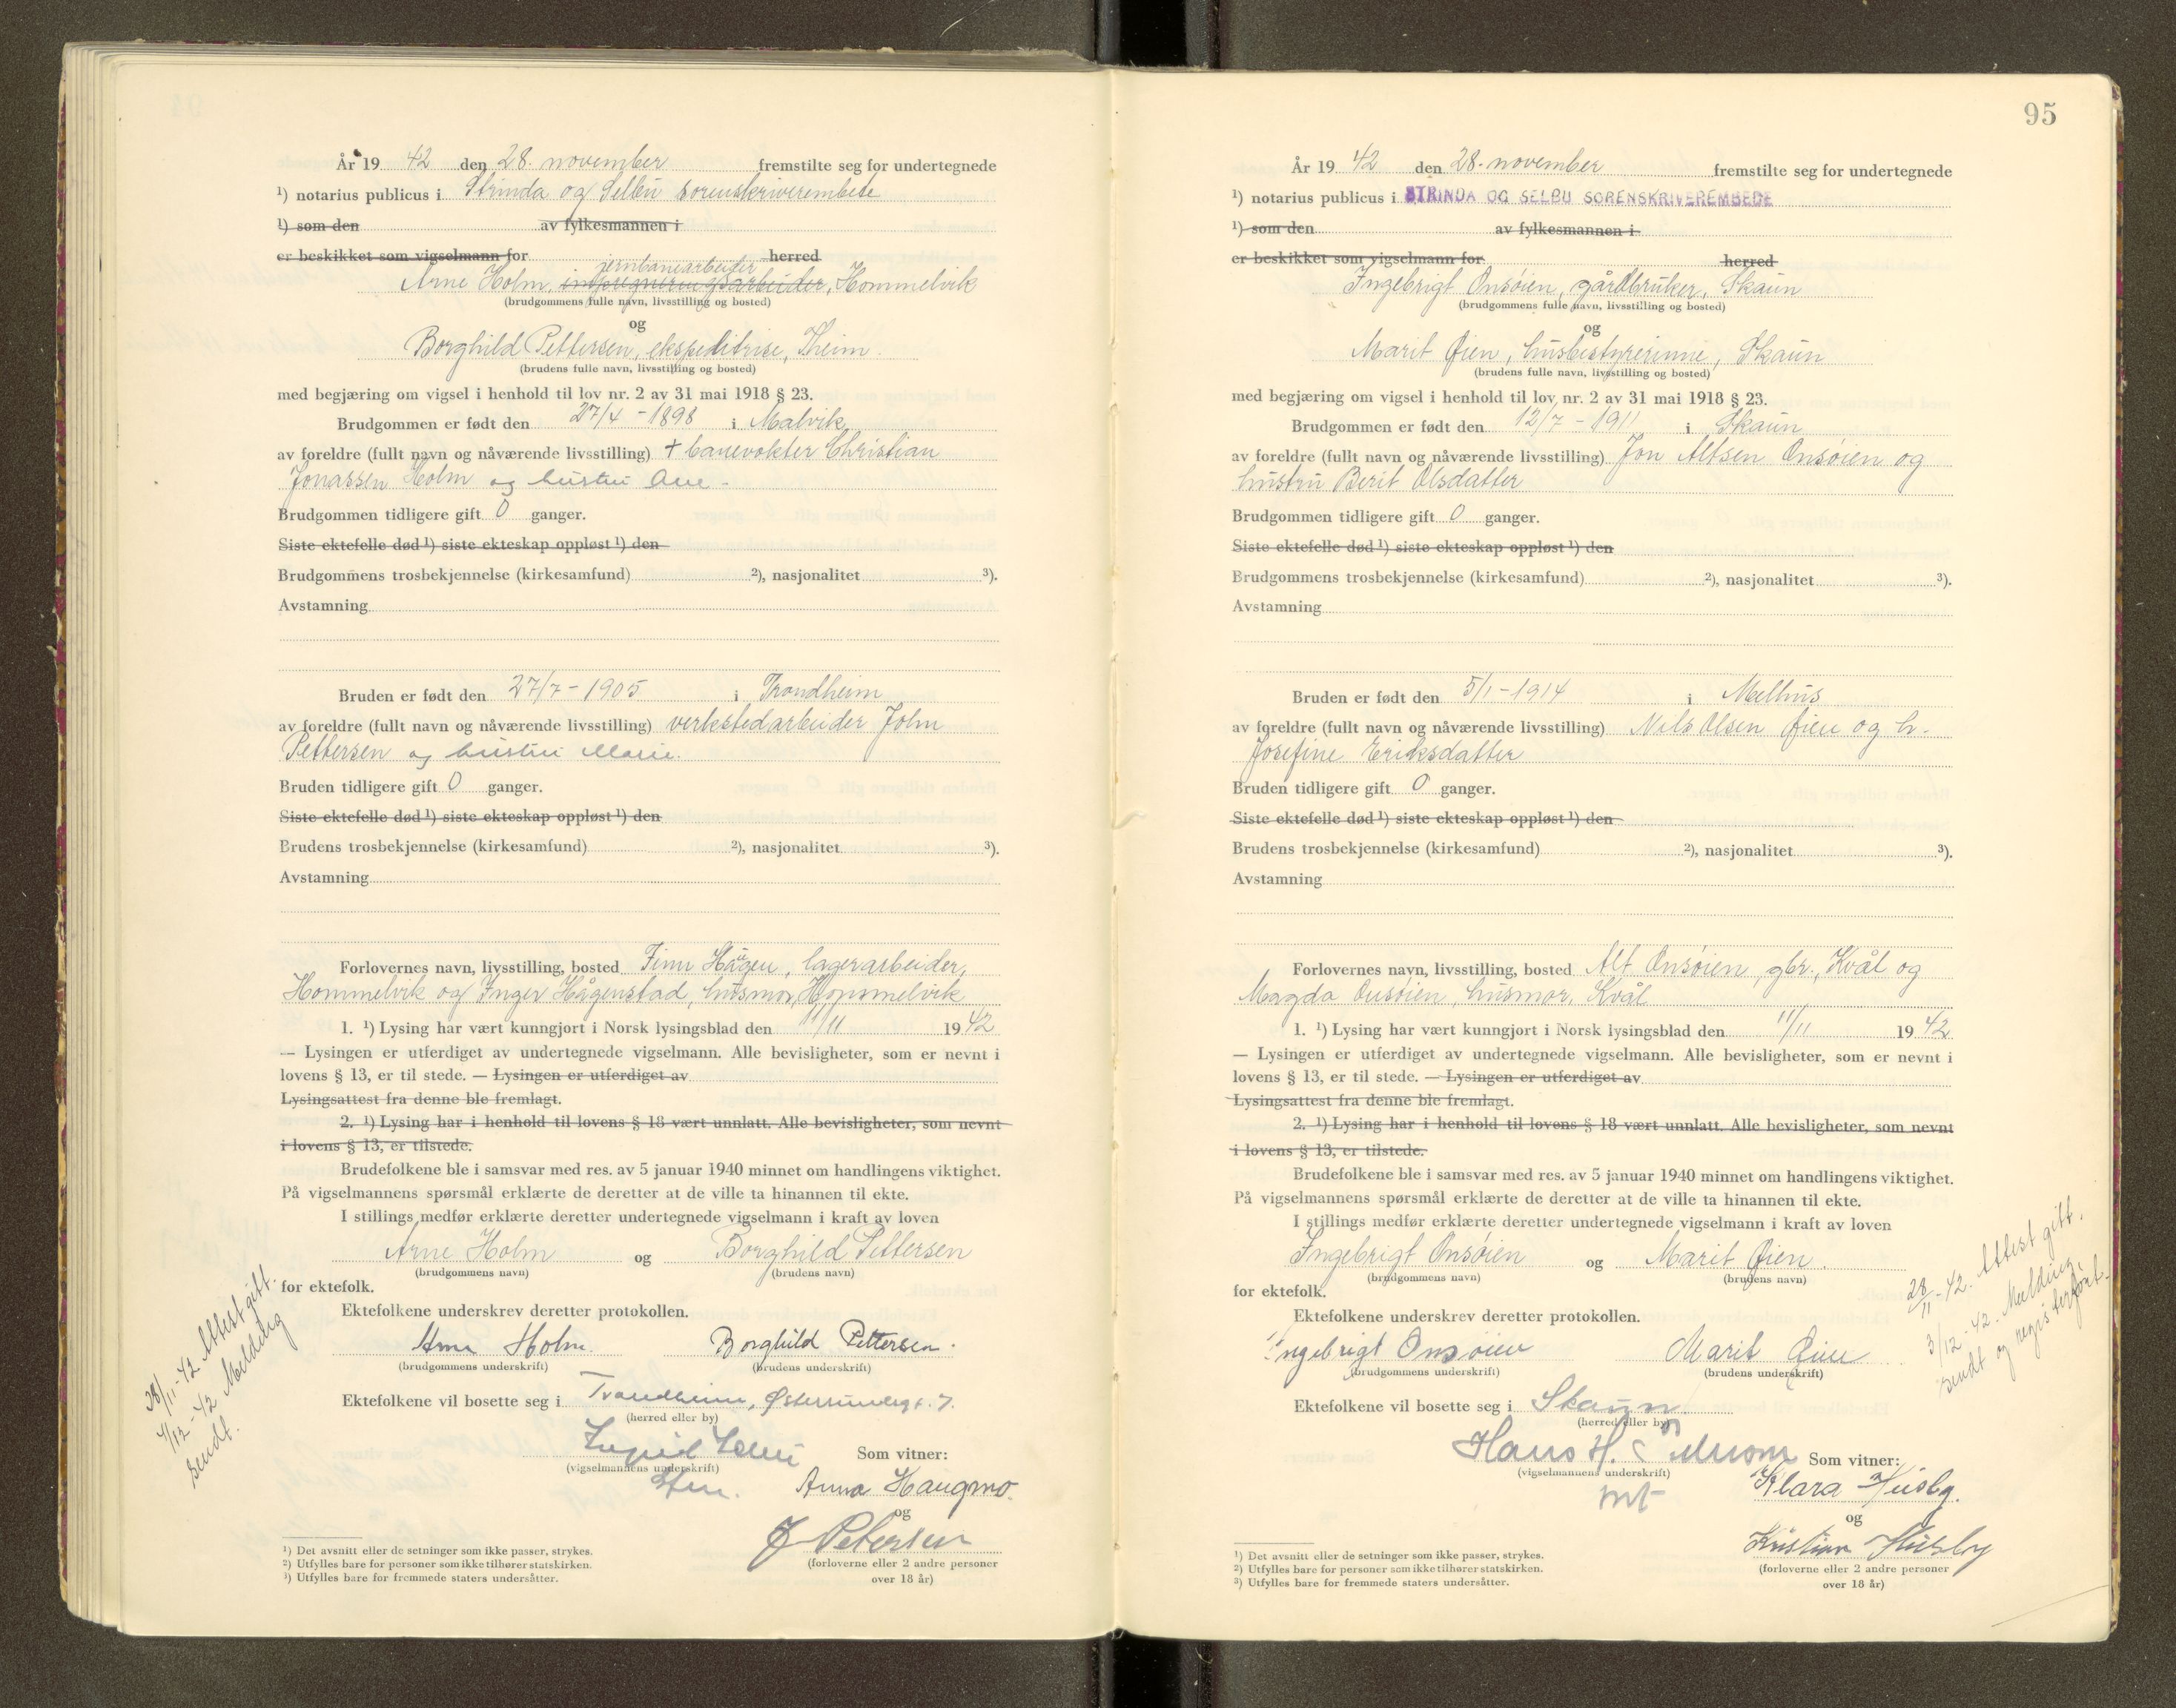 År 19 42 den 28. november fremstilte seg for undertegnede
¹) notarius publicus i Strinda og Selbu sorenskriverembede
¹) som den av fylkesmannen i
er beskikket som vigselmann for herred
jernbanearbeider
Arne Holm, impregneringsarbeider, Hommelvik
(brudgommens fulle navn, livsstilling og bosted)
og
Borghild Pettersen, ekspeditrise, Theim.
(brudens fulle navn, livsstilling og bosted)
med begjæring om vigsel i henhold til lov nr. 2 av 31 mai 1918 § 23.
Brudgommen er født den 27/4 - 1898 i Malvik
av foreldre (fullt navn og nåværende livsstilling) + banevokter Christian
Jonassen Holm og hustru Ane -
Brudgommen tidligere gift 0 ganger.
Siste ektefelle død ¹) siste ekteskap oppløst ¹) den
Brudgommens trosbekjennelse (kirkesamfund) ²), nasjonalitet ³).
Avstamning
Bruden er født den 27/7 - 1905 i Trondheim
av foreldre (fullt navn og nåværende livsstilling) verkstedarbeider John
Pettersen og hustru Marie.
Bruden tidligere gift 0 ganger.
Siste ektefelle død ¹) siste ekteskap oppløst ¹) den
Brudens trosbekjennelse (kirkesamfund) ²), nasjonalitet ³).
Avstamning
Forlovernes navn, livsstilling, bosted Finn Hågen, lagerarbeider,
Hommelvik og Inger Hågenstad, husmor, Hommelvik
1. ¹) Lysing har vært kunngjort i Norsk lysingsblad den 11/11 19 42
— Lysingen er utferdiget av undertegnede vigselmann. Alle bevisligheter, som er nevnt i
lovens § 13, er til stede. — Lysingen er utferdiget av
Lysingsattest fra denne ble fremlagt.
2. ¹) Lysing har i henhold til lovens § 18 vært unnlatt. Alle bevisligheter, som nevnt
i lovens § 13, er tilstede.
Brudefolkene ble i samsvar med res. av 5 januar 1940 minnet om handlingens viktighet.
På vigselmannens spørsmål erklærte de deretter at de ville ta hinannen til ekte.
I stillings medfør erklærte deretter undertegnede vigselmann i kraft av loven
Arne Holm og Borghild Pettersen
(brudgommens navn) (brudens navn)
for ektefolk.
Ektefolkene underskrev deretter protokollen.
Arne Holm. Borghild Pettersen.
(brudgommens underskrift) (brudens underskrift)
Ektefolkene vil bosette seg i Trondheim,
(herred eller by)
Som vitner:
(vigselmannens underskrift)
Anna Haugmo.
og
J Petersen
(forloverne eller 2 andre personer
over 18 år)
28/11-42 Attest gitt.
4/12-42 Melding
sendt.
¹) Det avsnitt eller de setninger som ikke passer, strykes.
²) Utfylles bare for personer som ikke tilhører statskirken.
³) Utfylles bare for fremmede staters undersåtter.
95
År 19 42 den 28. november fremstilte seg for undertegnede
¹) notarius publicus i STRINDA OG SELBU SORENSKRIVEREMBEDE
¹) som den av fylkesmannen i
er beskikket som vigselmann for herred
Ingebrigt Onsøien, gårdbruker, Skaun
(brudgommens fulle navn, livsstilling og bosted)
og
Marit Øien, husbestyrerinne, Skaun
(brudens fulle navn, livsstilling og bosted)
med begjæring om vigsel i henhold til lov nr. 2 av 31 mai 1918 § 23.
Brudgommen er født den 12/7 - 1911 i Skaun
av foreldre (fullt navn og nåværende livsstilling) Jon Altsen Onsøien og
hustru Berit Olsdatter
Brudgommen tidligere gift 0 ganger.
Siste ektefelle død ¹) siste ekteskap oppløst ¹) den
Brudgommens trosbekjennelse (kirkesamfund) ²), nasjonalitet ³).
Avstamning
Bruden er født den 5/1 - 1914 i Melhus
av foreldre (fullt navn og nåværende livsstilling) Nils Olsen Øien og h.
Josefine Eriksdatter
Bruden tidligere gift 0 ganger.
Siste ektefelle død ¹) siste ekteskap oppløst ¹) den
Brudens trosbekjennelse (kirkesamfund) ²), nasjonalitet ³).
Avstamning
Forlovernes navn, livsstilling, bosted Alt Onsøien, gbr., Kvål og
Magda Onsøien, husmor, Kvål
1. ¹) Lysing har vært kunngjort i Norsk lysingsblad den 11/11 19 42
— Lysingen er utferdiget av undertegnede vigselmann. Alle bevisligheter, som er nevnt i
lovens § 13, er til stede. — Lysingen er utferdiget av
Lysingsattest fra denne ble fremlagt.
2. ¹) Lysing har i henhold til lovens § 18 vært unnlatt. Alle bevisligheter, som nevnt
i lovens § 13, er tilstede.
Brudefolkene ble i samsvar med res. av 5 januar 1940 minnet om handlingens viktighet.
På vigselmannens spørsmål erklærte de deretter at de ville ta hinannen til ekte.
I stillings medfør erklærte deretter undertegnede vigselmann i kraft av loven
Ingebrigt Onsøien og Marit Øien.
(brudgommens navn) (brudens navn)
for ektefolk.
Ektefolkene underskrev deretter protokollen.
Ingebrigt Onsøien Marit Øien
(brudgommens underskrift) (brudens underskrift)
Ektefolkene vil bosette seg i Skaun
(herred eller by)
Hans H. Som vitner:
(vigselmannens underskrift)
Klara Husby.
og
Kristian Husby
(forloverne eller 2 andre personer
over 18 år)
28/11-42. Attest gitt.
3/12-42. Melding
sendt og registerført.
¹) Det avsnitt eller de setninger som ikke passer, strykes.
²) Utfylles bare for personer som ikke tilhører statskirken.
³) Utfylles bare for fremmede staters undersåtter.